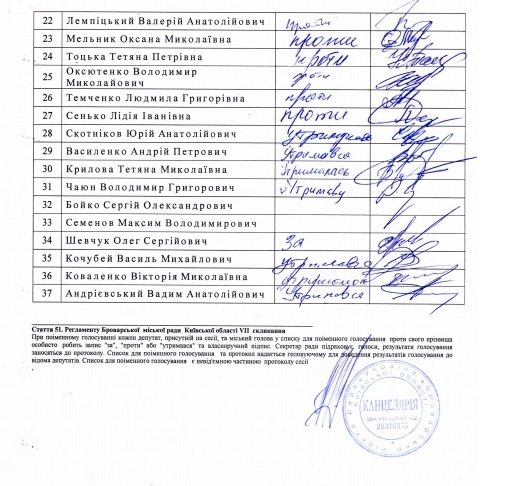 22 Лемпіцький Валерій Анатолійович проти
23 Мельник Оксана Миколаївна проти
24 Тоцька Тетяна Петрівна проти
25 Оксютенко Володимир Миколайович проти
26 Темченко Людмила Григорівна проти
27 Сенько Лідія Іванівна проти
28 Скотніков Юрій Анатолійович
29 Василенко Андрій Петрович Утримався
30 Крилова Тетяна Миколаївна Утрималась
31 Чаюн Володимир Григорович
32 Бойко Сергій Олександрович
33 Семенов Максим Володимирович
34 Шевчук Олег Сергійович За
35 Кочубей Василь Михайлович утримався
36 Коваленко Вікторія Миколаївна
37 Андрієвський Вадим Анатолійович Утримався
Стаття 51. Регламенту Броварської міської ради Київської області VII скликання
При поіменному голосуванні кожен депутат, присутній на сесії, та міський голова у списку для поіменного голосування проти свого прізвища
особисто робить запис "за", "проти" або "утримався" та власноручний підпис. Секретар ради підраховує голоси, результати голосування
заносяться до протоколу. Список для поіменного голосування та протокол надається головуючому для доведення результатів голосування до
відома депутатів. Список для поіменного голосування є невід'ємною частиною протоколу сесії
КАНЦЕЛЯРІЯ
20376375